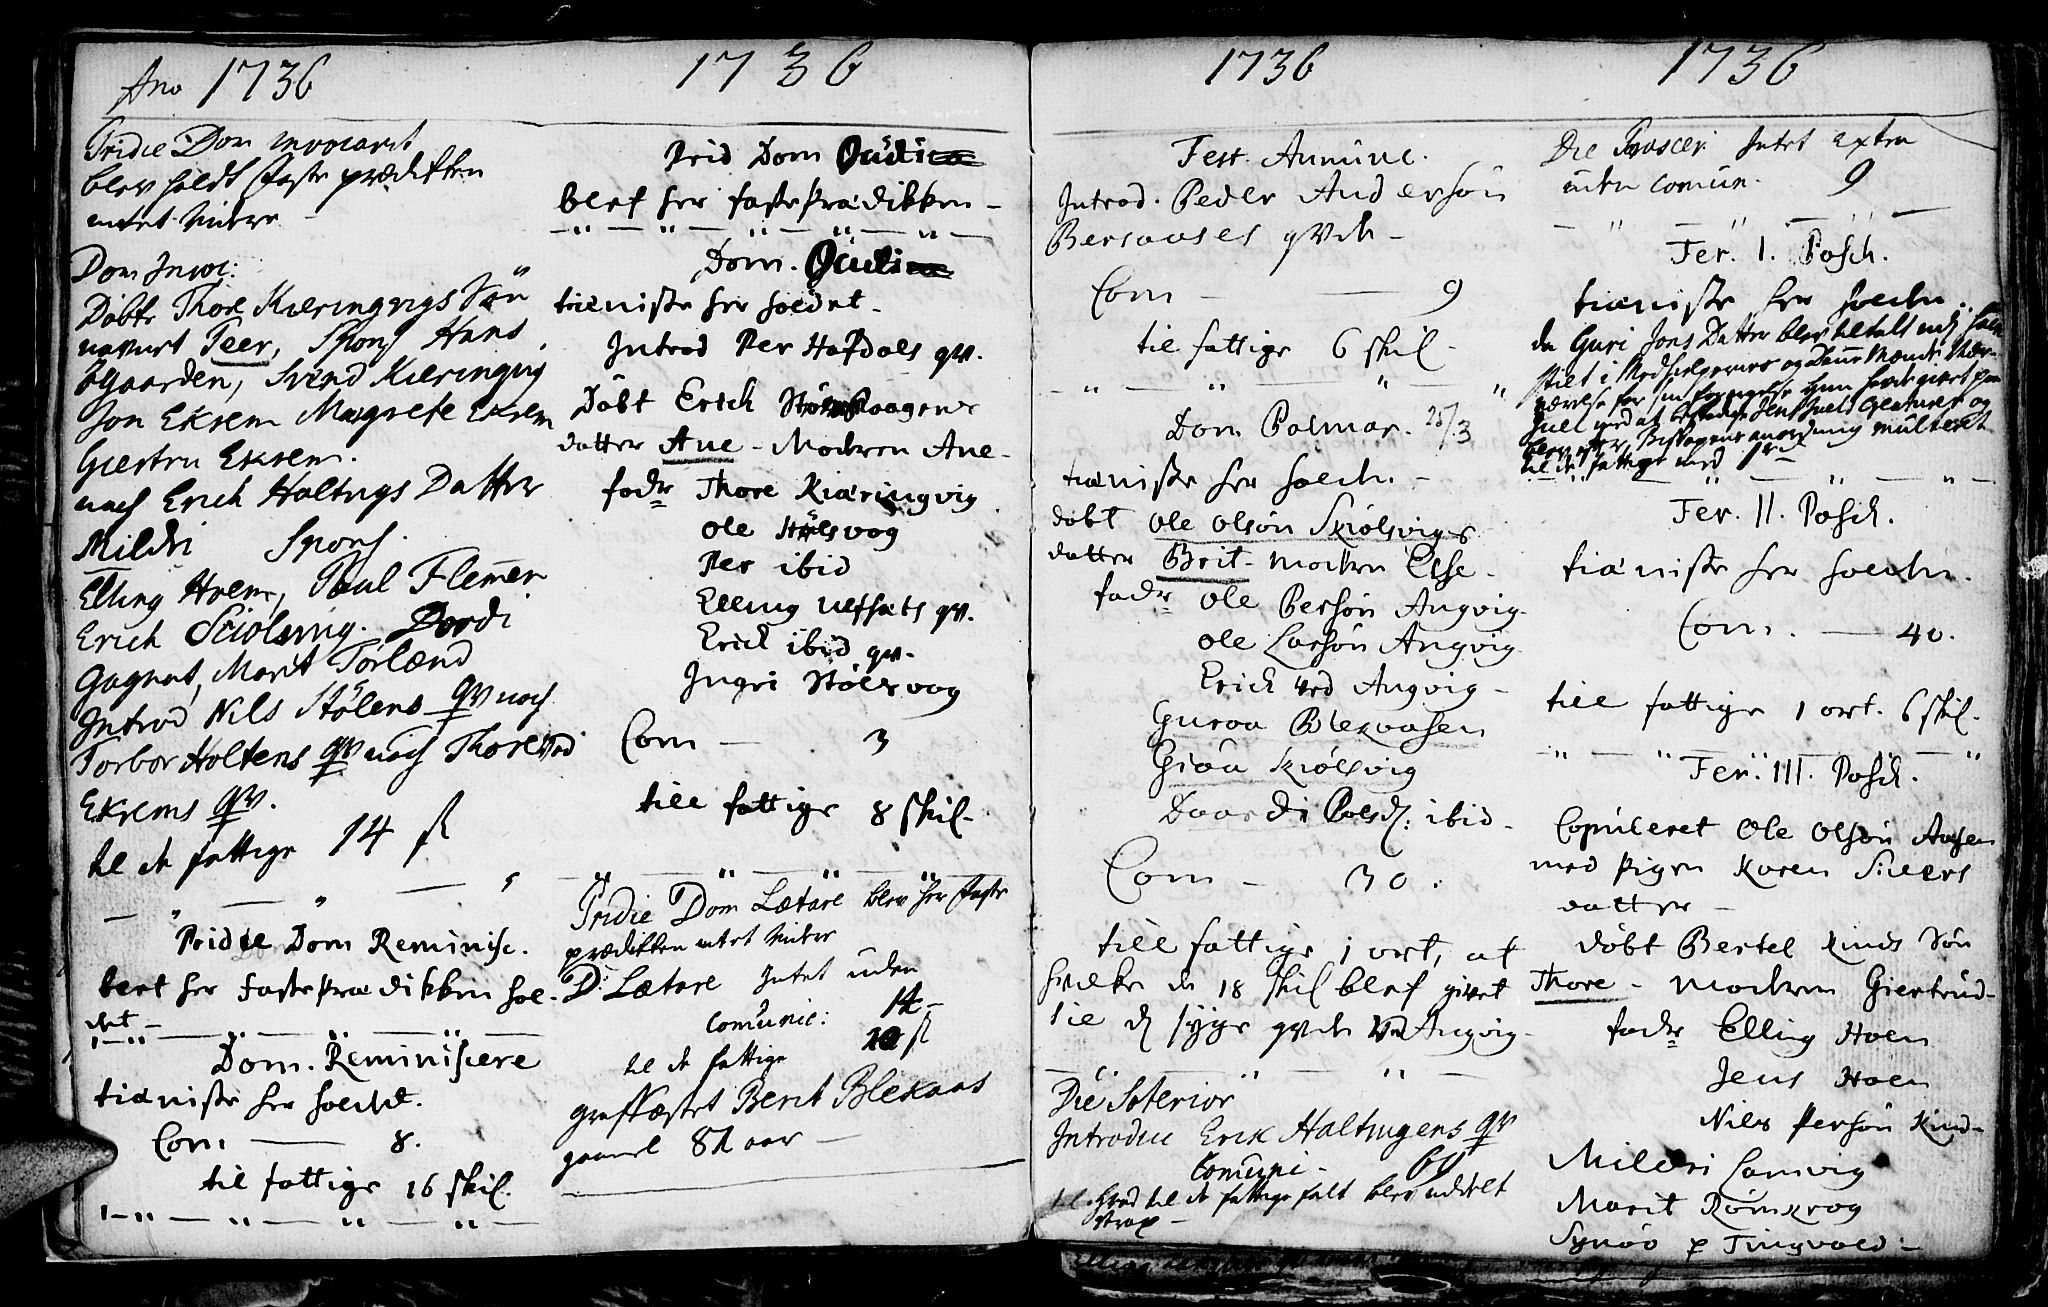 Ano 1736
Pridie Dom invocavit
blev holdt faste prædikken
intet videre
Dom Invoc:
Døbte Thore Kieringvigs Søn
navnet Peer, Spons Hans
Øgaarden, Svend Kieringvig
Jon Eksem Margrete Eksem
Giertru Eksem.
noch Erich Haltvigs Datter
Mildri Spons.
Elling Hoem, Paul Flemen
Erich Sciolsvig. Dordi
Gagnat, Marit Torlænd
Introd Nils Stølens qv noch
Torbor Holtens qv noch Thore
Eksems qv.
til de fattige 14 sk
Pridie Dom Reminisc.
blef her faste prædikken hol-
det
Dom. Reminiscere
tieniste her holdet.
Com — 8.
til fattige 16 skil.
1736
Prid Dom Oculi
blef her faste prædikken
Dom. Oculi
tieniste her holdet.
Introd Per Hafdals qv.
Døbt Erich Stølsvaagens
datter Ane - Modren Ane
fadr Thore Kiæringvig
Ole Stølsvog
Per ibid
Elling Ulfsets qv.
Erich ibid qv.
Ingri Stølsvog
Com — 3
till fattige 8 skil.
Pridie Dom Lætare blev her faste
prædikken intet videre
D: Lætare Intet uden
Comunic: 14
til de fattige 20 sk
grafkastet Berit Blekaas
gamel 82 aar —
1736
Fest. Annunc.
Introd. Peder Andersøn
Bersaases qvde
Com — 9
til fattige 6 skil
Dom. Palmar. 25/3
tieniste her holde.
døbt Ole Olsøn Skiølsvigs
datter Brit - modren Else
fadr Ole Persøn Angvig
Ole Larsøn Angvig
Erich ved Angvig
Guroa Blekaasen
Giøa Skiølsvig
Daardi Polsd: ibid
Com — 30.
till fattige 1 ort, af
hvilke de 18 skil blef givet
til d syge qvde ved Angvig
Die Soterior
Introduc Erik Haltvigens qv
Comuni - 64
til de fattige falt blev uddelt
strax —
1736
Die Parascev: Intet Extra
uden Comun. 9
Fer. I. Pasch.
tieniste her holden.
da Guri Jons Datter blev
Medhielpernes og
Fer. II. Pasch.
tieniste her holden.
Com. — 40.
till fattige 1 ort. 6 skil.
Fer. III. Pasch.
Copuleret Ole Olsøn Aasen
med pigen Karen Siuers
datter
døbt Bertel Kinds Søn
Thore - modren Giertrud
fadr Elling Hoem
Jens Hoem
Nils Persøn Kind
Mildri Camvig
Marit Rømkrog
Synøv p Tingvold